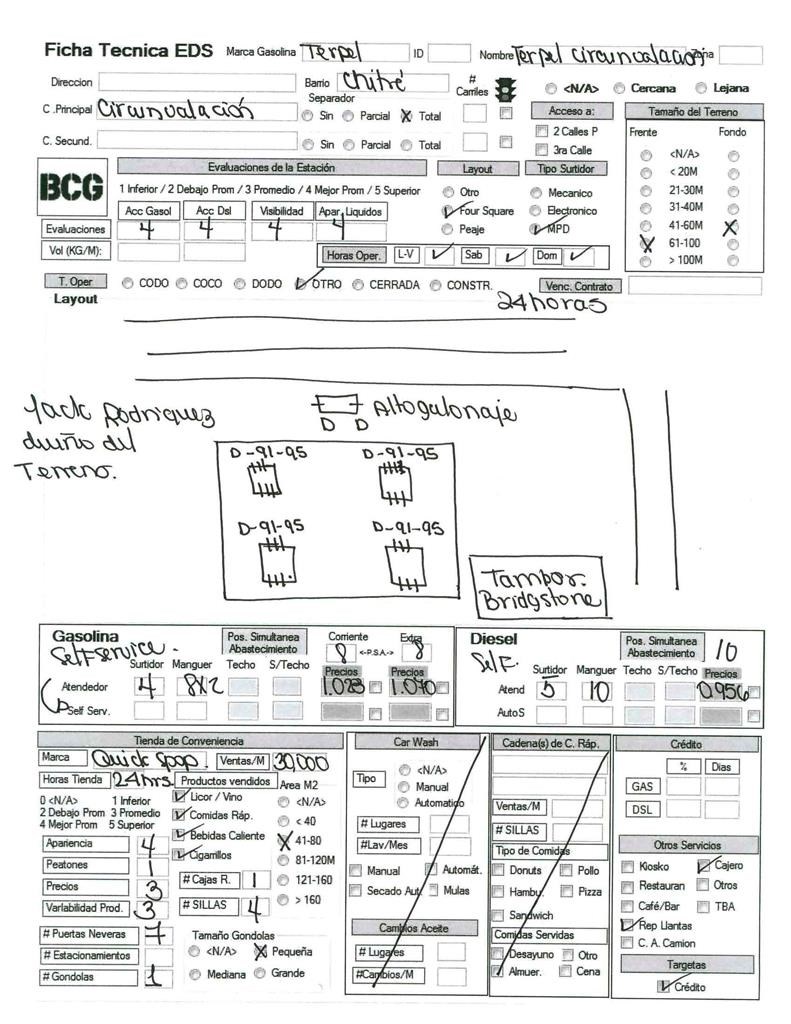 Ficha Tecnica EDS Marca Gasolina Terpel ID Nombre Terpel circunvalación Zona
Direccion Barrio Chitré # Carriles <N/A> Cercana Lejana
C .Principal Circunvalación Separador Sin Parcial X Total Acceso a: Tamaño del Terreno
C. Secund. Sin Parcial Total 2 Calles P Frente Fondo
3ra Calle <N/A>
BCG Evaluaciones de la Estación Layout Tipo Surtidor < 20M
1 Inferior / 2 Debajo Prom / 3 Promedio / 4 Mejor Prom / 5 Superior Otro Mecanico 21-30M
Acc Gasol Acc Dsl Visibilidad Apar. Liquidos Four Square Electronico 31-40M
Evaluaciones 4 4 4 4 Peaje MPD 41-60M X
Vol (KG/M): Horas Oper. L-V ✓ Sab ✓ Dom ✓ X 61-100
> 100M
T. Oper CODO COCO DODO OTRO CERRADA CONSTR. Venc. Contrato
Layout 24 horas
Yack Rodriquez
dueño del
Terreno.
Altogalonaje
D D
D-91-95 D-91-95
D-91-95 D-91-95
Tampor.
Bridgstone
Gasolina Pos. Simultanea Abastecimiento Corriente 8 <-P.S.A.-> Extra 8
Self service.
Surtidor Manguer Techo S/Techo Precios Precios
Atendedor 4 8x2 1.023 1.040
Self Serv.
Diesel Pos. Simultanea Abastecimiento 10
Self.
Surtidor Manguer Techo S/Techo Precios
Atend 5 10 0.956
Auto S
Tienda de Conveniencia
Marca Quick Ventas/M 30,000
Horas Tienda 24hrs. Productos vendidos Area M2
0 <N/A> 1 Inferior
2 Debajo Prom 3 Promedio
4 Mejor Prom 5 Superior
Licor / Vino
Comidas Ráp.
Bebidas Caliente
Cigarrillos
<N/A>
< 40
X 41-80
81-120M
121-160
> 160
Apariencia 4
Peatones 1
Precios 3
Varlabilidad Prod. 3
# Puertas Neveras 7
# Estacionamientos
# Gondolas 1
# Cajas R. 1
# SILLAS 4
Tamaño Gondolas
<N/A> X Pequeña
Mediana Grande
Car Wash
Tipo <N/A>
Manual
Automatico
# Lugares
#Lav/Mes
Manual Automát.
Secado Aut. Mulas
Cambios Aceite
# Lugares
#Cambios/M
Cadena(s) de C. Ráp.
Ventas/M
# SILLAS
Tipo de Comidas
Donuts Pollo
Hambu. Pizza
Sandwich
Comidas Servidas
Desayuno Otro
Almuer. Cena
Crédito
% Dias
GAS
DSL
Otros Servicios
Kiosko Cajero
Restauran Otros
Café/Bar TBA
Rep Llantas
C. A. Camion
Targetas
Crédito